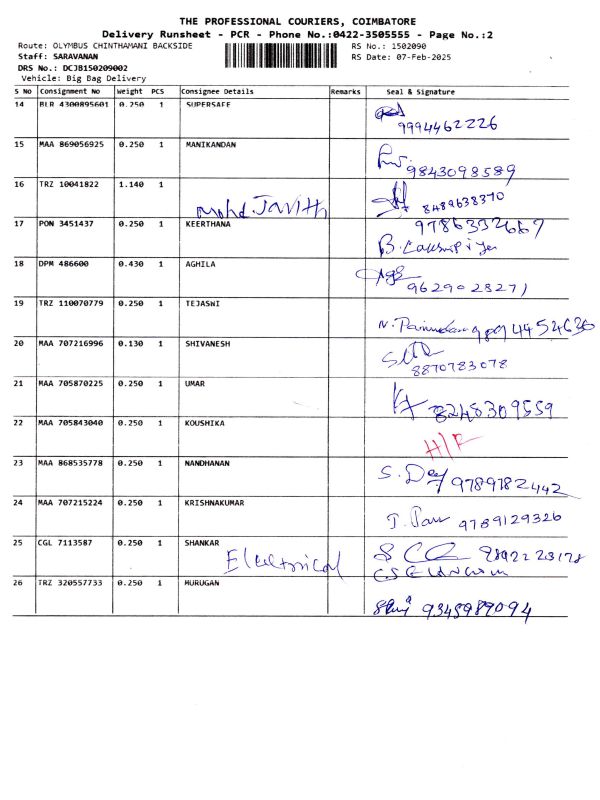 THE PROFESSIONAL COURIERS, COIMBATORE
Delivery Runsheet - PCR - Phone No.:0422-3505555 - Page No.:2
Route: OLYMBUS CHINTHAMANI BACKSIDE RS No.: 1502090
Staff: SARAVANAN RS Date: 07-Feb-2025
DRS No.: DCJB150209002
Vehicle: Big Bag Delivery
S No Consignment No Weight PCS Consignee Details Remarks Seal & Signature
14 BLR 4300895601 0.250 1 SUPERSAFE
9994462226
15 MAA 869056925 0.250 1 MANIKANDAN
9843098589
16 TRZ 10041822 1.140 1
Mohd Javith 8489638370
17 PON 3451437 0.250 1 KEERTHANA 9786332667
18 DPM 486600 0.430 1 AGHILA
9629028271
19 TRZ 110070779 0.250 1 TEJASWI
20 MAA 707216996 0.130 1 SHIVANESH
8870783078
21 MAA 705870225 0.250 1 UMAR
8248309559
22 MAA 705843040 0.250 1 KOUSHIKA
23 MAA 868535778 0.250 1 NANDHANAN
S. Dey 9789182442
24 MAA 707215224 0.250 1 KRISHNAKUMAR
9789129326
25 CGL 7113587 0.250 1 SHANKAR
Electrical
26 TRZ 320557733 0.250 1 MURUGAN
9345989094